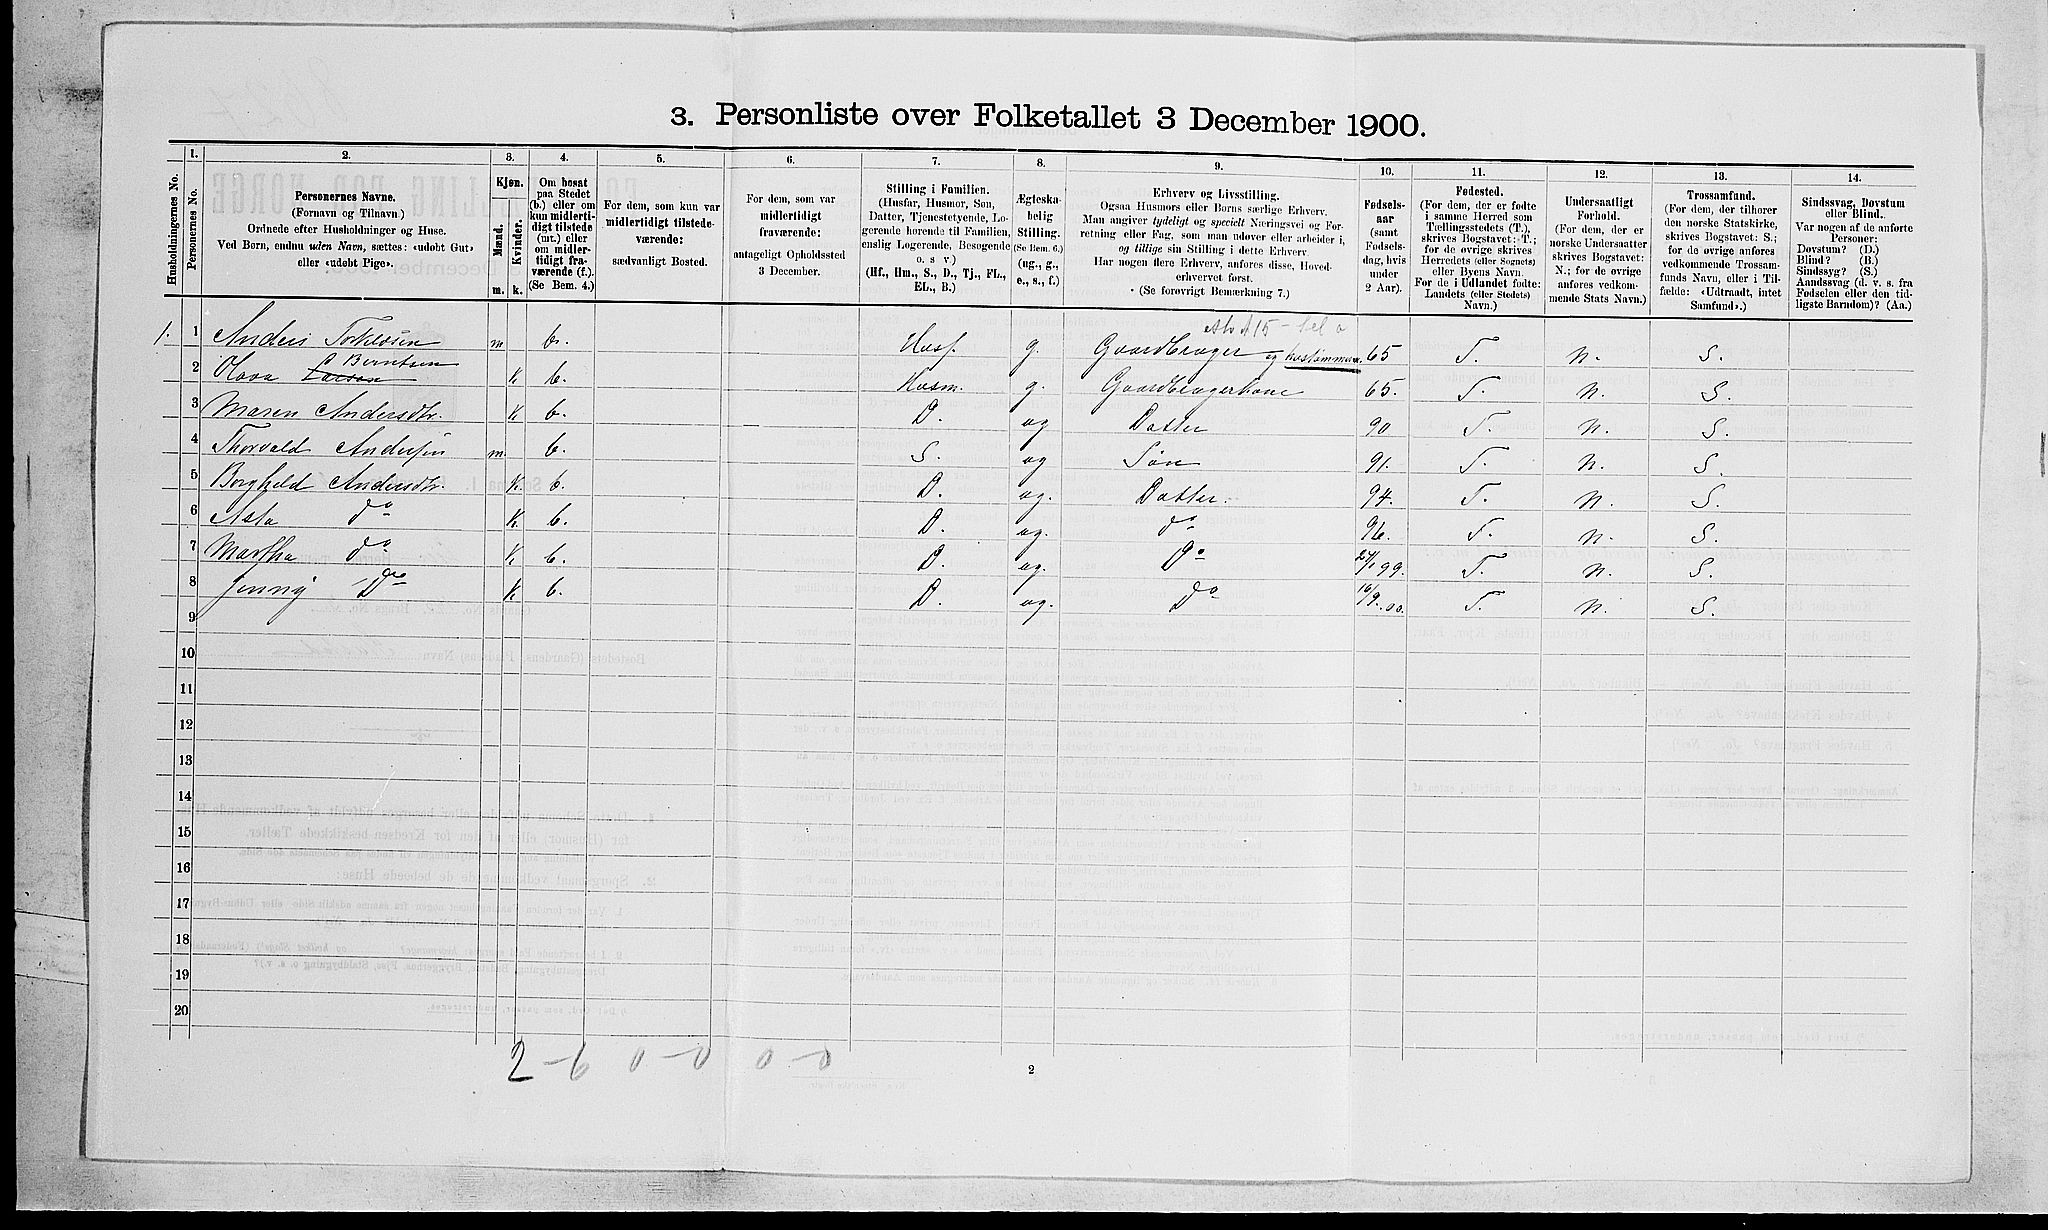 3. Personliste over Folketallet 3 December 1900.
Husholdningernes No.
1. Personernes No.
2. Personernes Navne. (Fornavn og Tilnavn.) Ordnede efter Husholdninger og Huse. Ved Børn, endnu uden Navn, sættes: «udøbt Gut» eller «udøbt Pige».
3. Kjøn. Mænd. m. Kvinder. k.
4. Om bosat paa Stedet (b.) eller om kun midlertidigt tilstede (mt.) eller om midlertidigt fraværende (f.). (Se Bem. 4.)
5. For dem, som kun var midlertidigt tilstedeværende: sædvanligt Bosted.
6. For dem, som var midlertidigt fraværende: antageligt Opholdssted 3 December.
7. Stilling i Familien. (Husfar, Husmor, Søn, Datter, Tjenestetyende, Logerende hørende til Familien, enslig Logerende, Besøgende o. s. v.) (Hf., Hm., S., D., Tj., FL., EL., B.)
8. Ægteskabelig Stilling. (Se Bem. 6.) (ug., g., e., s., f.)
9. Erhverv og Livsstilling. Ogsaa Husmors eller Børns særlige Erhverv. Man angiver tydeligt og specielt Næringsvei og Forretning eller Fag, som man udøver eller arbeider i, og tillige sin Stilling i dette Erhverv. Har nogen flere Erhverv, anføres disse, Hovederhvervet først. (Se forøvrigt Bemærkning 7.)
10. Fødselsaar (samt Fødselsdag, hvis under 2 Aar).
11. Fødested. (For dem, der er fødte i samme Herred som Tællingsstedets (T.), skrives Bogstavet: T.; for de øvrige skrives Herredets (eller Sognets) eller Byens Navn. For de i Udlandet fødte: Landets (eller Stedets) Navn.)
12. Undersaatligt Forhold. (For dem, der er norske Undersaatter skrives Bogstavet: N.; for de øvrige anføres vedkommende Stats Navn.)
13. Trossamfund. (For dem, der tilhører den norske Statskirke, skrives Bogstavet: S.; for de øvrige anføres vedkommende Trossamfunds Navn, eller i Tilfælde: «Udtraadt, intet Samfund».)
14. Sindssvag, Døvstum eller Blind. Var nogen af de anførte Personer: Døvstum? (D.) Blind? (B.) Sindssyg? (S.) Aandssvag (d. v. s. fra Fødselen eller den tidligste Barndom)? (Aa.)
1. 1 Anders m b. Husf. g. Gaardbruger og 65 T. N. S.
2 Berntsen K b. Husm. g. Gaardbrugerkone 65. T. N. S.
3 Maren Andersdtr. K b. D. ug Datter 90 T. N. S.
4 Thorvald Andersen m. b. S. ug Søn 91. T. N. S.
5 Borghild Andersdtr. K. b. D. ug. Datter. 94. T. N. S.
6 Asta do K. b. D. ug. do 96. T. N. S.
7 Martha do K b. D. ug. Do 24/1 99. T. N. S.
8 Jenny Do K b. D. ug. Do 16/9.00. T. N. S.
9
10
11
12
13
14
15
16
17
18
19
20
2-6 0-0 0-0
2